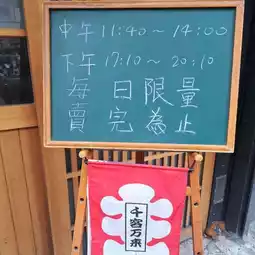 中午 11:40～14:00
下午 17:10～20:10
每日限量
賣完為止
千客万来